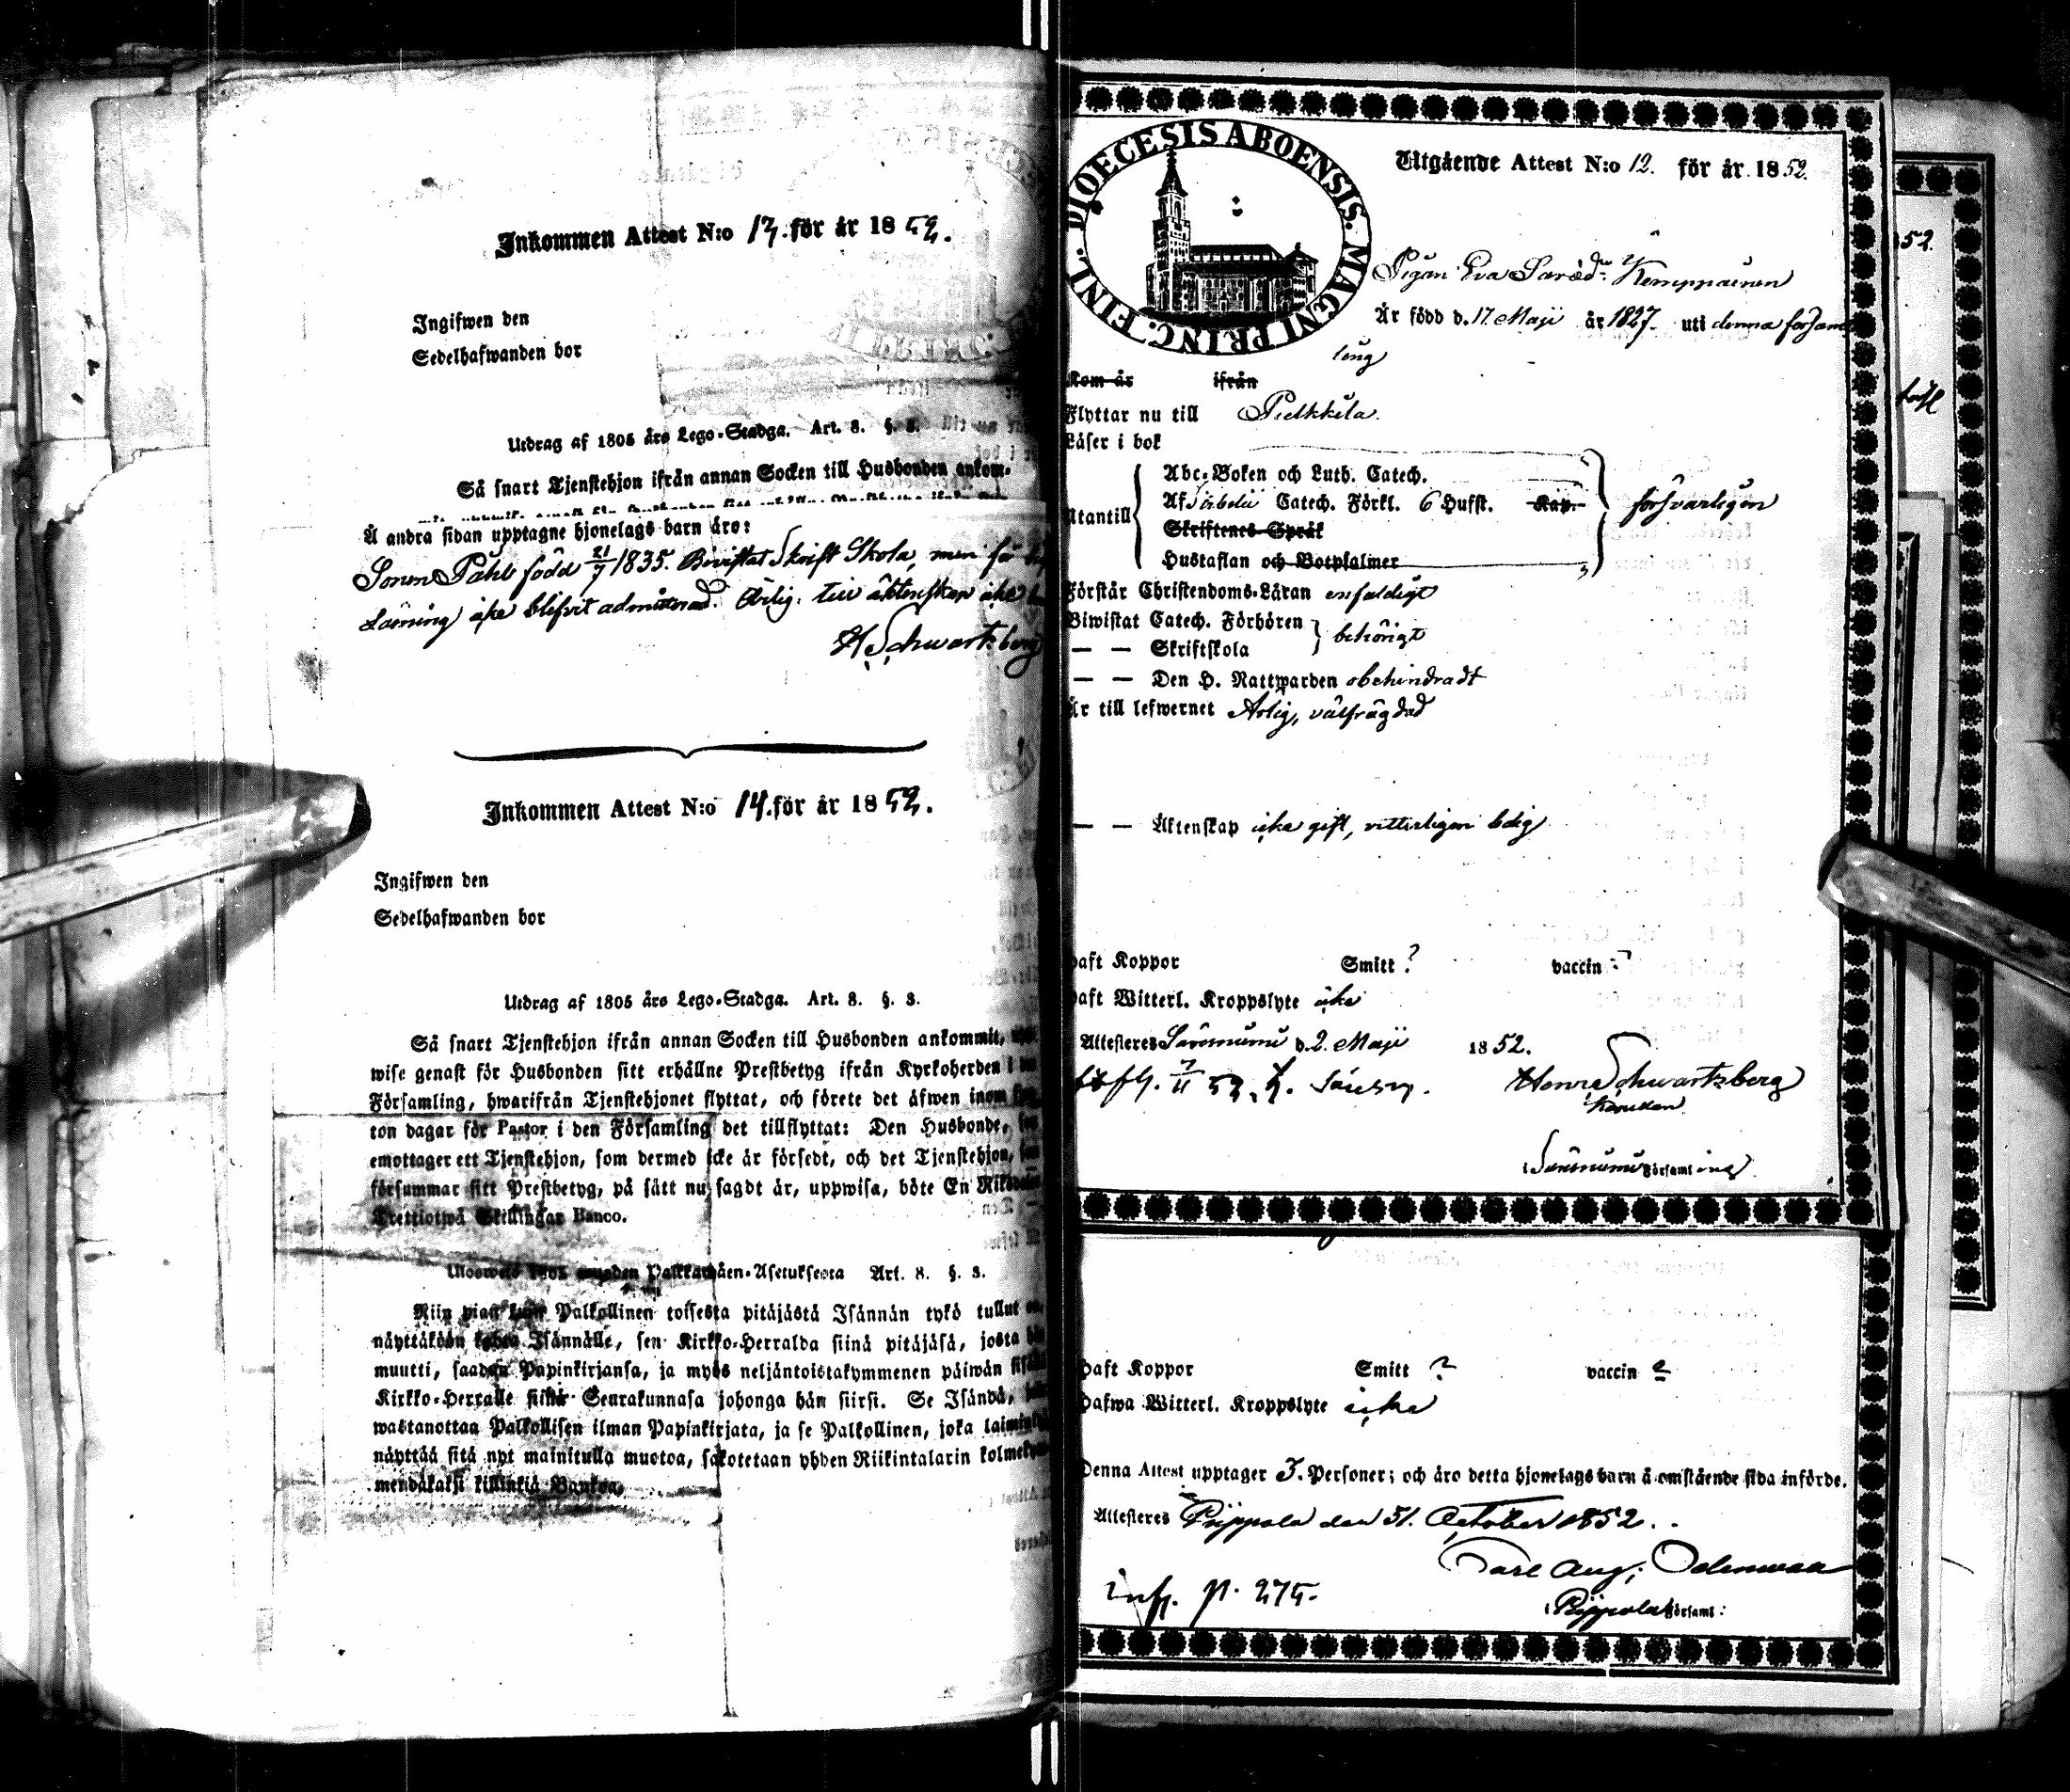 Inkommen Attest N:o 13. för år 1852.
Ingifwen den
Sedelhafwanden bor
Utdrag af 1805 års Lego-Stadga. Art. 8. §. 3.
Så snart Tjenstehjon ifrån annan Socken till Husbonden ankom-
Å andra sidan upptagne hjonelags barn äro:
Sonen Påhl född 21/7 1835. Bivistat Skrift Skola, men för
Läsning icke blifvit admitterad. Ärlig. till äktenskap icke
H Schwartzberg
Inkommen Attest N:o 14. för år 1852.
Ingifwen den
Sedelhafwanden bor
Utdrag af 1805 års Lego-Stadga. Art. 8. §. 3.
Så snart Tjenstehjon ifrån annan Socken till Husbonden ankommit,
wise genast för Husbonden sitt erhållne Prestbetyg ifrån Kyrkoherden i
Församling, hwarifrån Tjenstehjonet flyttat, och förete det äfwen inom
ton dagar för Pastor i den Församling det tillflyttat: Den Husbonde,
emottager ett Tjenstehjon, som dermed icke är försedt, och det Tjenstehjon,
försummar sitt Prestbetyg, på sätt nu sagdt är, uppwisa, böte En Riksdaler
Trettiotwå Skillingar Banco.
Palkkawäen-Asetuksesta Art. 8. §. 3.
Niin pian kuin Palkollinen toisesta pitäjästä Isännän tykö tullut
näyttäköön kohta Isännälle, sen Kirkko-Herralda siinä pitäjäsä, josta hän
muutti, saadun Papinkirjansa, ja myös neljäntoistakymmenen päiwän sisällä
Kirkko-Herralle siinä Seurakunnasa johonga hän siirsi. Se Isändä,
wastanottaa Palkollisen ilman Papinkirjata, ja se Palkollinen, joka
näyttää sitä nyt mainitulla muotoa, sakotetaan yhden Riikintalarin
mendäkaksi killinkiä Bankoa.
DIOECESIS ABOENSIS. MAGNI PRINC. FINL.
Utgående Attest N:o 12. för år 1852.
Pigan Eva Larsd:r Kemppainen
Är född d. 17 Maji år 1827. uti denna försam
ling
Kom år ifrån
Flyttar nu till Pulkkila.
Läser i bok
Abc-Boken och Luth. Catech.
Utantill Af Svebelii Catech. Förkl. 6 Hufst. Kap. försvarligen
Skriftenes Språk
Hustaflan och Botpsalmer
Förstår Christendoms-Läran enfaldigt
Biwistat Catech. Förhören behörigt
— — Skriftskola
— — Den H. Nattwarden obehindradt
Är till lefwernet Ärlig, välfrägdad
— — Äktenskap icke gift, vitterligen ledig
Haft Koppor Smitt ? vaccin ?
Haft Witterl. Kroppslyte icke
Attesteres Säresniemi d. 2. Maji 1852.
Henr Schwartzberg
i Säresniemi Församling
Haft Koppor Smitt ? vaccin ?
Hafwa Witterl. Kroppslyte icke
Denna Attest upptager 3. Personer; och äro detta hjonelags barn å omstående sida införde.
Attesteres Pippola den 31. October 1852.
Carl Aug:
inf. p. 275.
i Pippola Församl:
52.